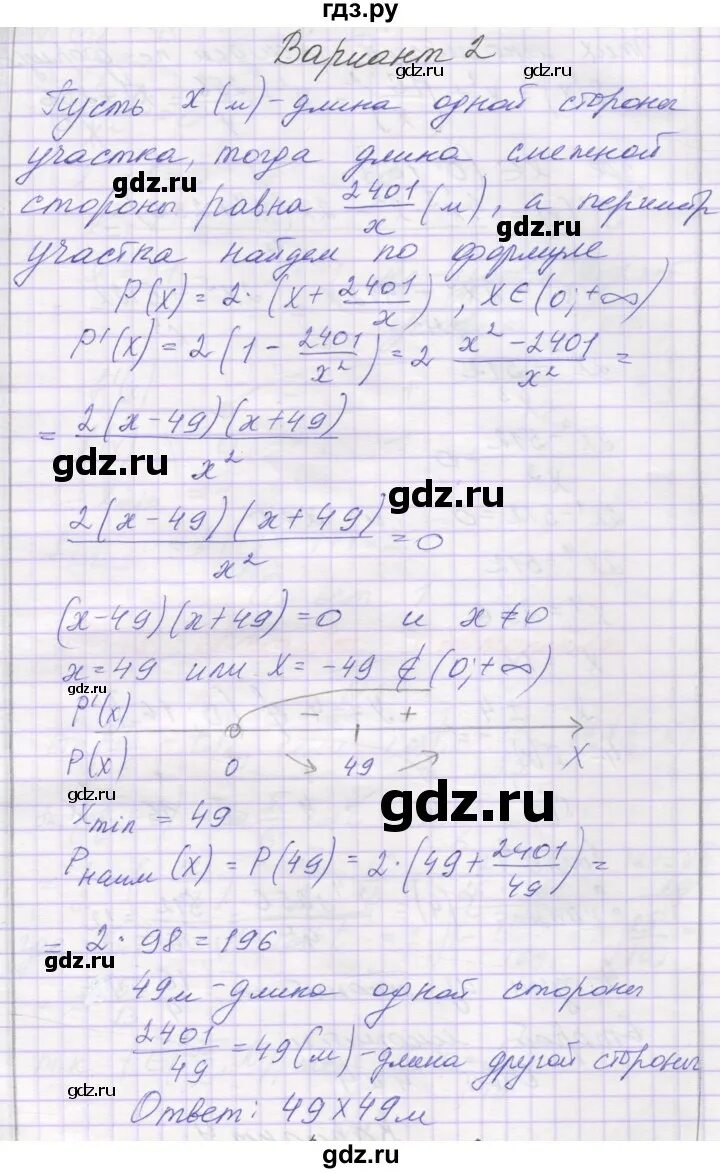 гдз.ру
Вариант 2
gdz.ru gdz.ru
Пусть x(м)-длина одной стороны
участка, тогда длина смежной
gdz.ru
стороны равна 2401/x (м), а периметр
gdz.ru
участка найдем по формуле
P(x) = 2·(x + 2401/x), x∈(0;+∞)
P'(x) = 2(1 - 2401/x²) = 2 (x² - 2401)/x² =
= 2(x-49)(x+49)/x²
gdz.ru
gdz.ru
2(x-49)(x+49)/x² = 0
(x-49)(x+49)=0 и x≠0
x=49 или x= -49 ∉(0;+∞)
gdz.ru
P'(x) - +
P(x) 0 ↘ 49 ↗ X
gdz.ru
gdz.ru
xmin = 49
Pнаим(x) = P(49) = 2·(49 + 2401/49) =
= 2·98 = 196
gdz.ru
49м-длина одной стороны
2401/49 = 49(м)-длина другой стороны
gdz.ru
Ответ: 49 x 49м
gdz.ru